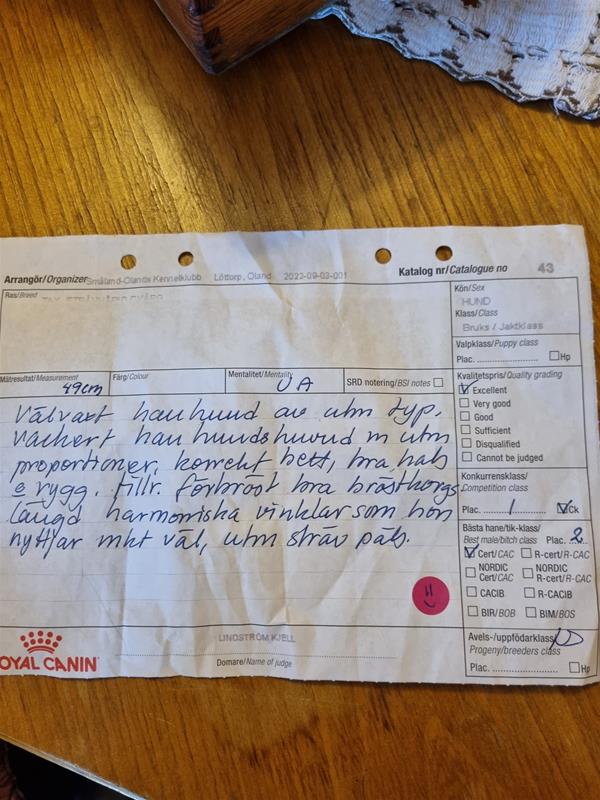 Arrangör/Organizer Småland-Ölands Kennelklubb Löttorp, Öland 2022-09-03-001
Katalog nr/Catalogue no 43
Ras/Breed
Kön/Sex
HUND
Klass/Class
Bruks / Jaktklass
Valpklass/Puppy class
Plac. Hp
Mätresultat/Measurement 49cm
Färg/Colour
Mentalitet/Mentality UA
SRD notering/BSI notes
Kvalitetspris/Quality grading
Excellent
Very good
Good
Sufficient
Disqualified
Cannot be judged
Välvaxt hanhund av utm typ.
Vackert hanhundshuvud m utm
proportioner, korrekt bett, bra hals
o rygg. tillr. förbröst bra bröstkorgs
längd harmoniska vinklar som hon
nyttjar mkt väl, utm sträv päls.
Konkurrensklass/
Competition class
Plac. 1 Ck
Bästa hane/tik-klass/
Best male/bitch class Plac. 2
Cert/CAC R-cert/R-CAC
NORDIC Cert/CAC NORDIC R-cert/R-CAC
CACIB R-CACIB
BIR/BOB BIM/BOS
Avels-/uppfödarklass/
Progeny/breeders class
Plac. Hp
ROYAL CANIN
LINDSTRÖM KJELL
Domare/Name of judge